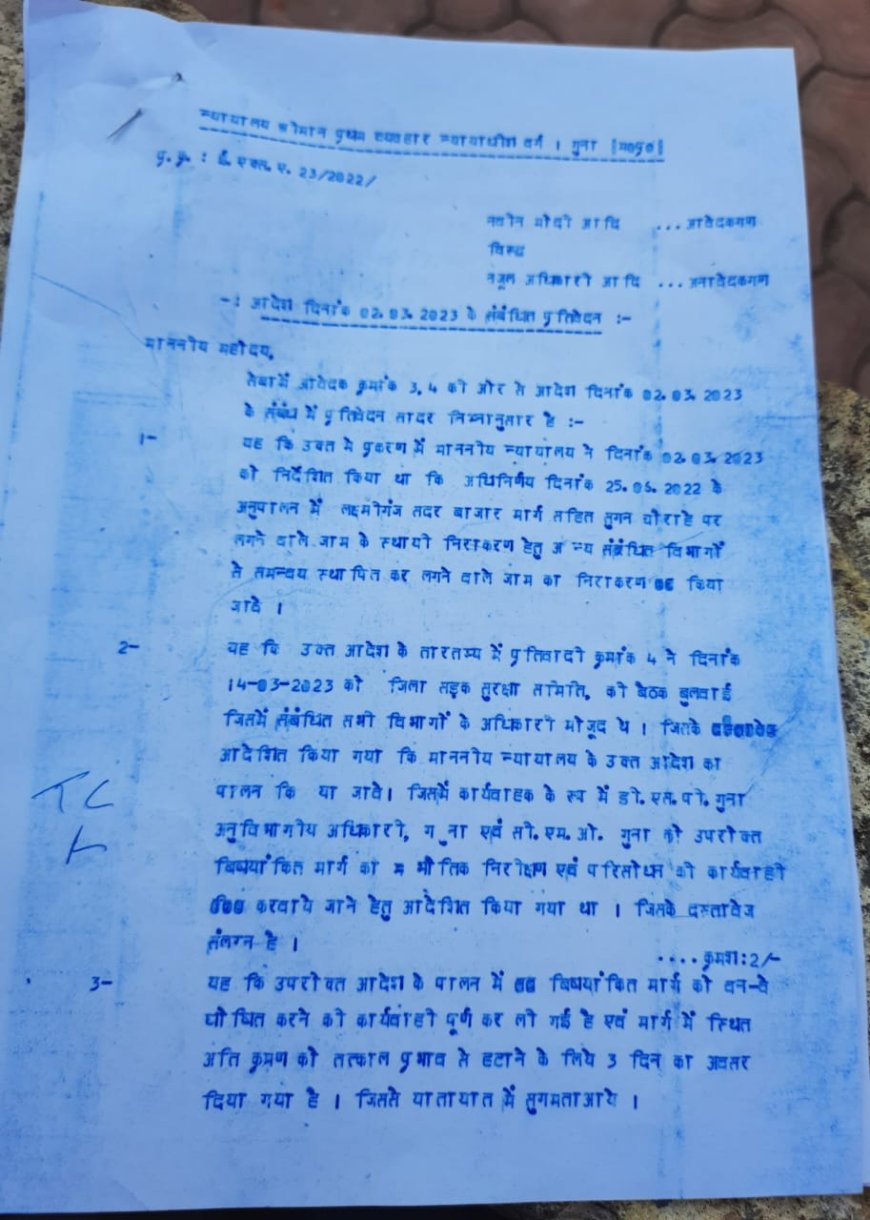 न्यायालय श्रीमान प्रथम व्यवहार न्यायाधीश वर्ग । गुना [म०प्र०]
प्र. क्र. : ई. एक्स. ए. 23/2022/
नवीन मोदी आदि ... आवेदकगण
विरुद्ध
नजूल अधिकारी आदि ... अनावेदकगण
-: आदेश दिनांक 02.03.2023 के संबंधित प्रतिवेदन :-
माननीय महोदय,
सेवामें आवेदक क्रमांक 3,4 की ओर से आदेश दिनांक 02.03.2023
के संबंध में प्रतिवेदन सादर निम्नानुसार है :-
1- यह कि उक्त मे प्रकरण में माननीय न्यायालय ने दिनांक 02.03.2023
को निर्देशित किया था कि अधिनिर्णय दिनांक 25.06.2022 के
अनुपालन में लक्ष्मीगंज सदर बाजार मार्ग सहित सुगन चौराहे पर
लगने वाले जाम के स्थायी निराकरण हेतु अन्य संबंधित विभागों
से समन्वय स्थापित कर लगने वाले जाम का निराकरण किया
जावे ।
2- यह कि उक्त आदेश के तारतम्य में प्रतिवादी क्रमांक 4 ने दिनांक
14-03-2023 को जिला सड़क सुरक्षा समिति, की बैठक बुलवाई
जिसमें संबंधित सभी विभागों के अधिकारी मौजूद थे । जिसके
आदेशित किया गया कि माननीय न्यायालय के उक्त आदेश का
पालन कि या जावे। जिसमें कार्यवाहक के रूप में डी.एस.पी. गुना
अनुविभागीय अधिकारी, गुना एवं सी.एम.ओ. गुना को उपरोक्त
विषयांकित मार्ग का भौतिक निरीक्षण एवं परिसीमन की कार्यवाही
करवाये जाने हेतु आदेशित किया गया था । जिसके दस्तावेज
संलग्न है ।
....क्रमश:2/-
3- यह कि उपरोक्त आदेश के पालन में विषयांकित मार्ग को वन-वे
घोषित करने की कार्यवाही पूर्ण कर ली गई है एवं मार्ग में स्थित
अतिक्रमण को तत्काल प्रभाव से हटाने के लिये 3 दिन का अवसर
दिया गया है । जिससे यातायात में सुगमता आये ।
TC